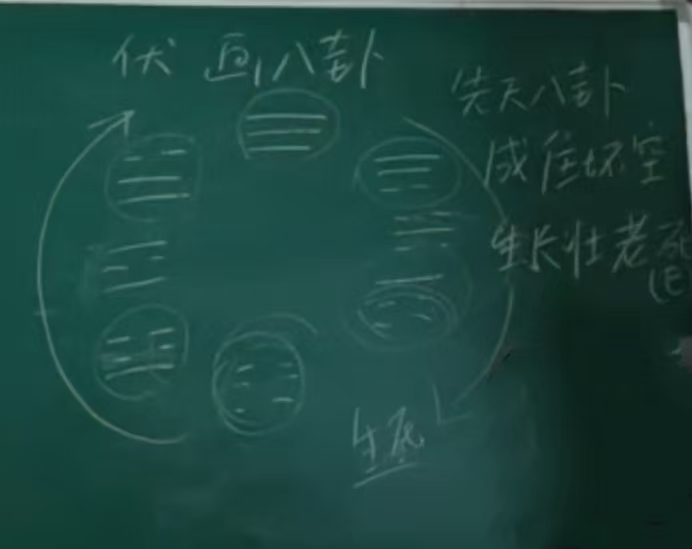 伏 画八卦
先天八卦
成住坏空
生长壮老死
生死